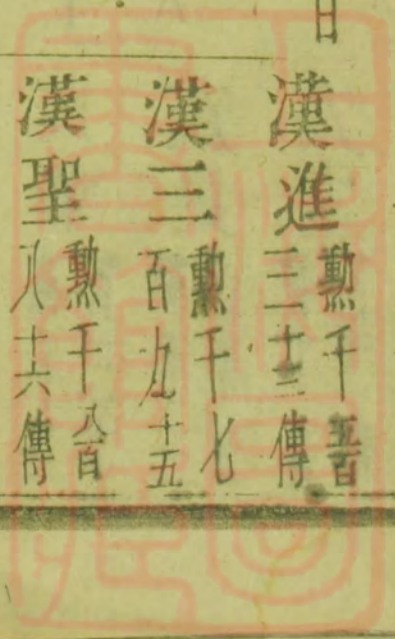 漢進
勲千五百
三十三傳
漢三
勲千七
百九十五
漢聖
勲千八百
八十六傳